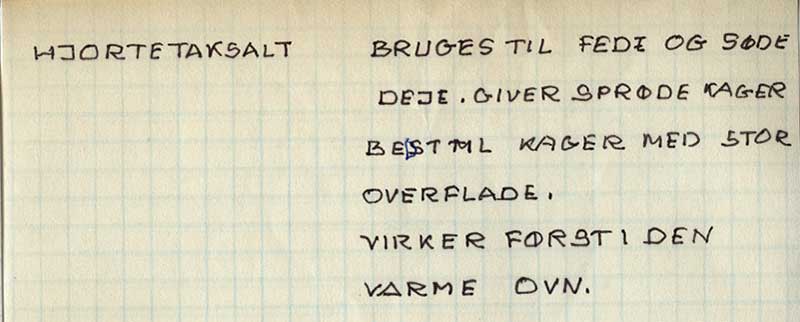 HJORTETAKSALT BRUGES TIL FEDE OG SØDE
DEJE. GIVER SPRØDE KAGER
BEST TIL KAGER MED STOR
OVERFLADE.
VIRKER FØRST I DEN
VARME OVN.